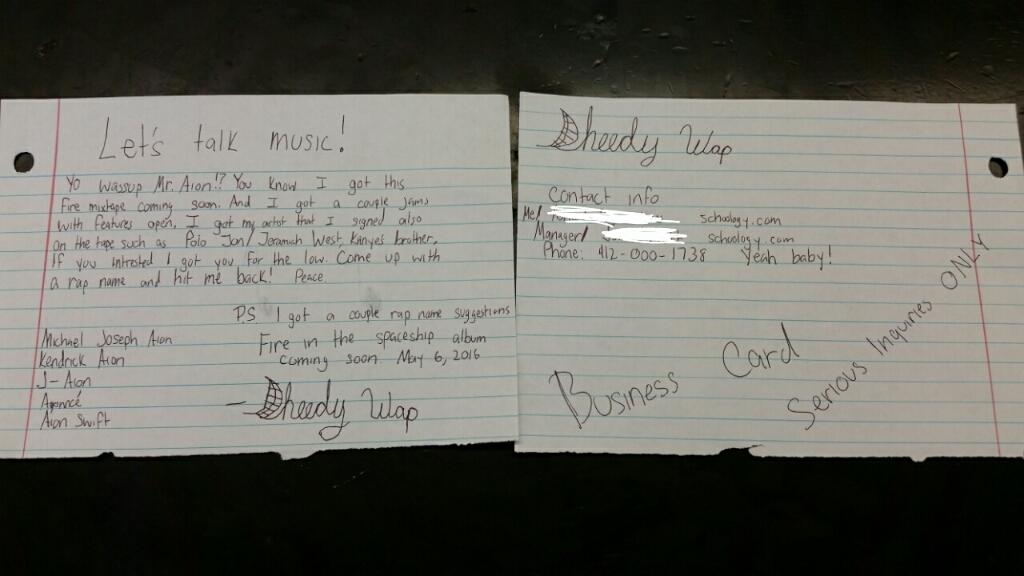 Let's talk music!
Yo wassup Mr. Aion!? You know I got this
fire mixtape coming soon. And I got a couple jams
with features open, I got my artist that I signed also
on the tape such as Polo Jon/ Jeramiah West, Kanyes brother.
If you intrested I got you for the low. Come up with
a rap name and hit me back! Peace.
P.S. I got a couple rap name suggestions
Michael Joseph Aion
Kendrick Aion
J-Aion
Aioncé
Aion Swift
Fire in the spaceship album
coming soon May 6, 2016
- Sheedy Wap
Sheedy Wap
Contact info
Me/ schoology.com
Manager/ schoology.com
Phone: 412-000-1738 Yeah baby!
Business Card
Serious Inquiries ONLY